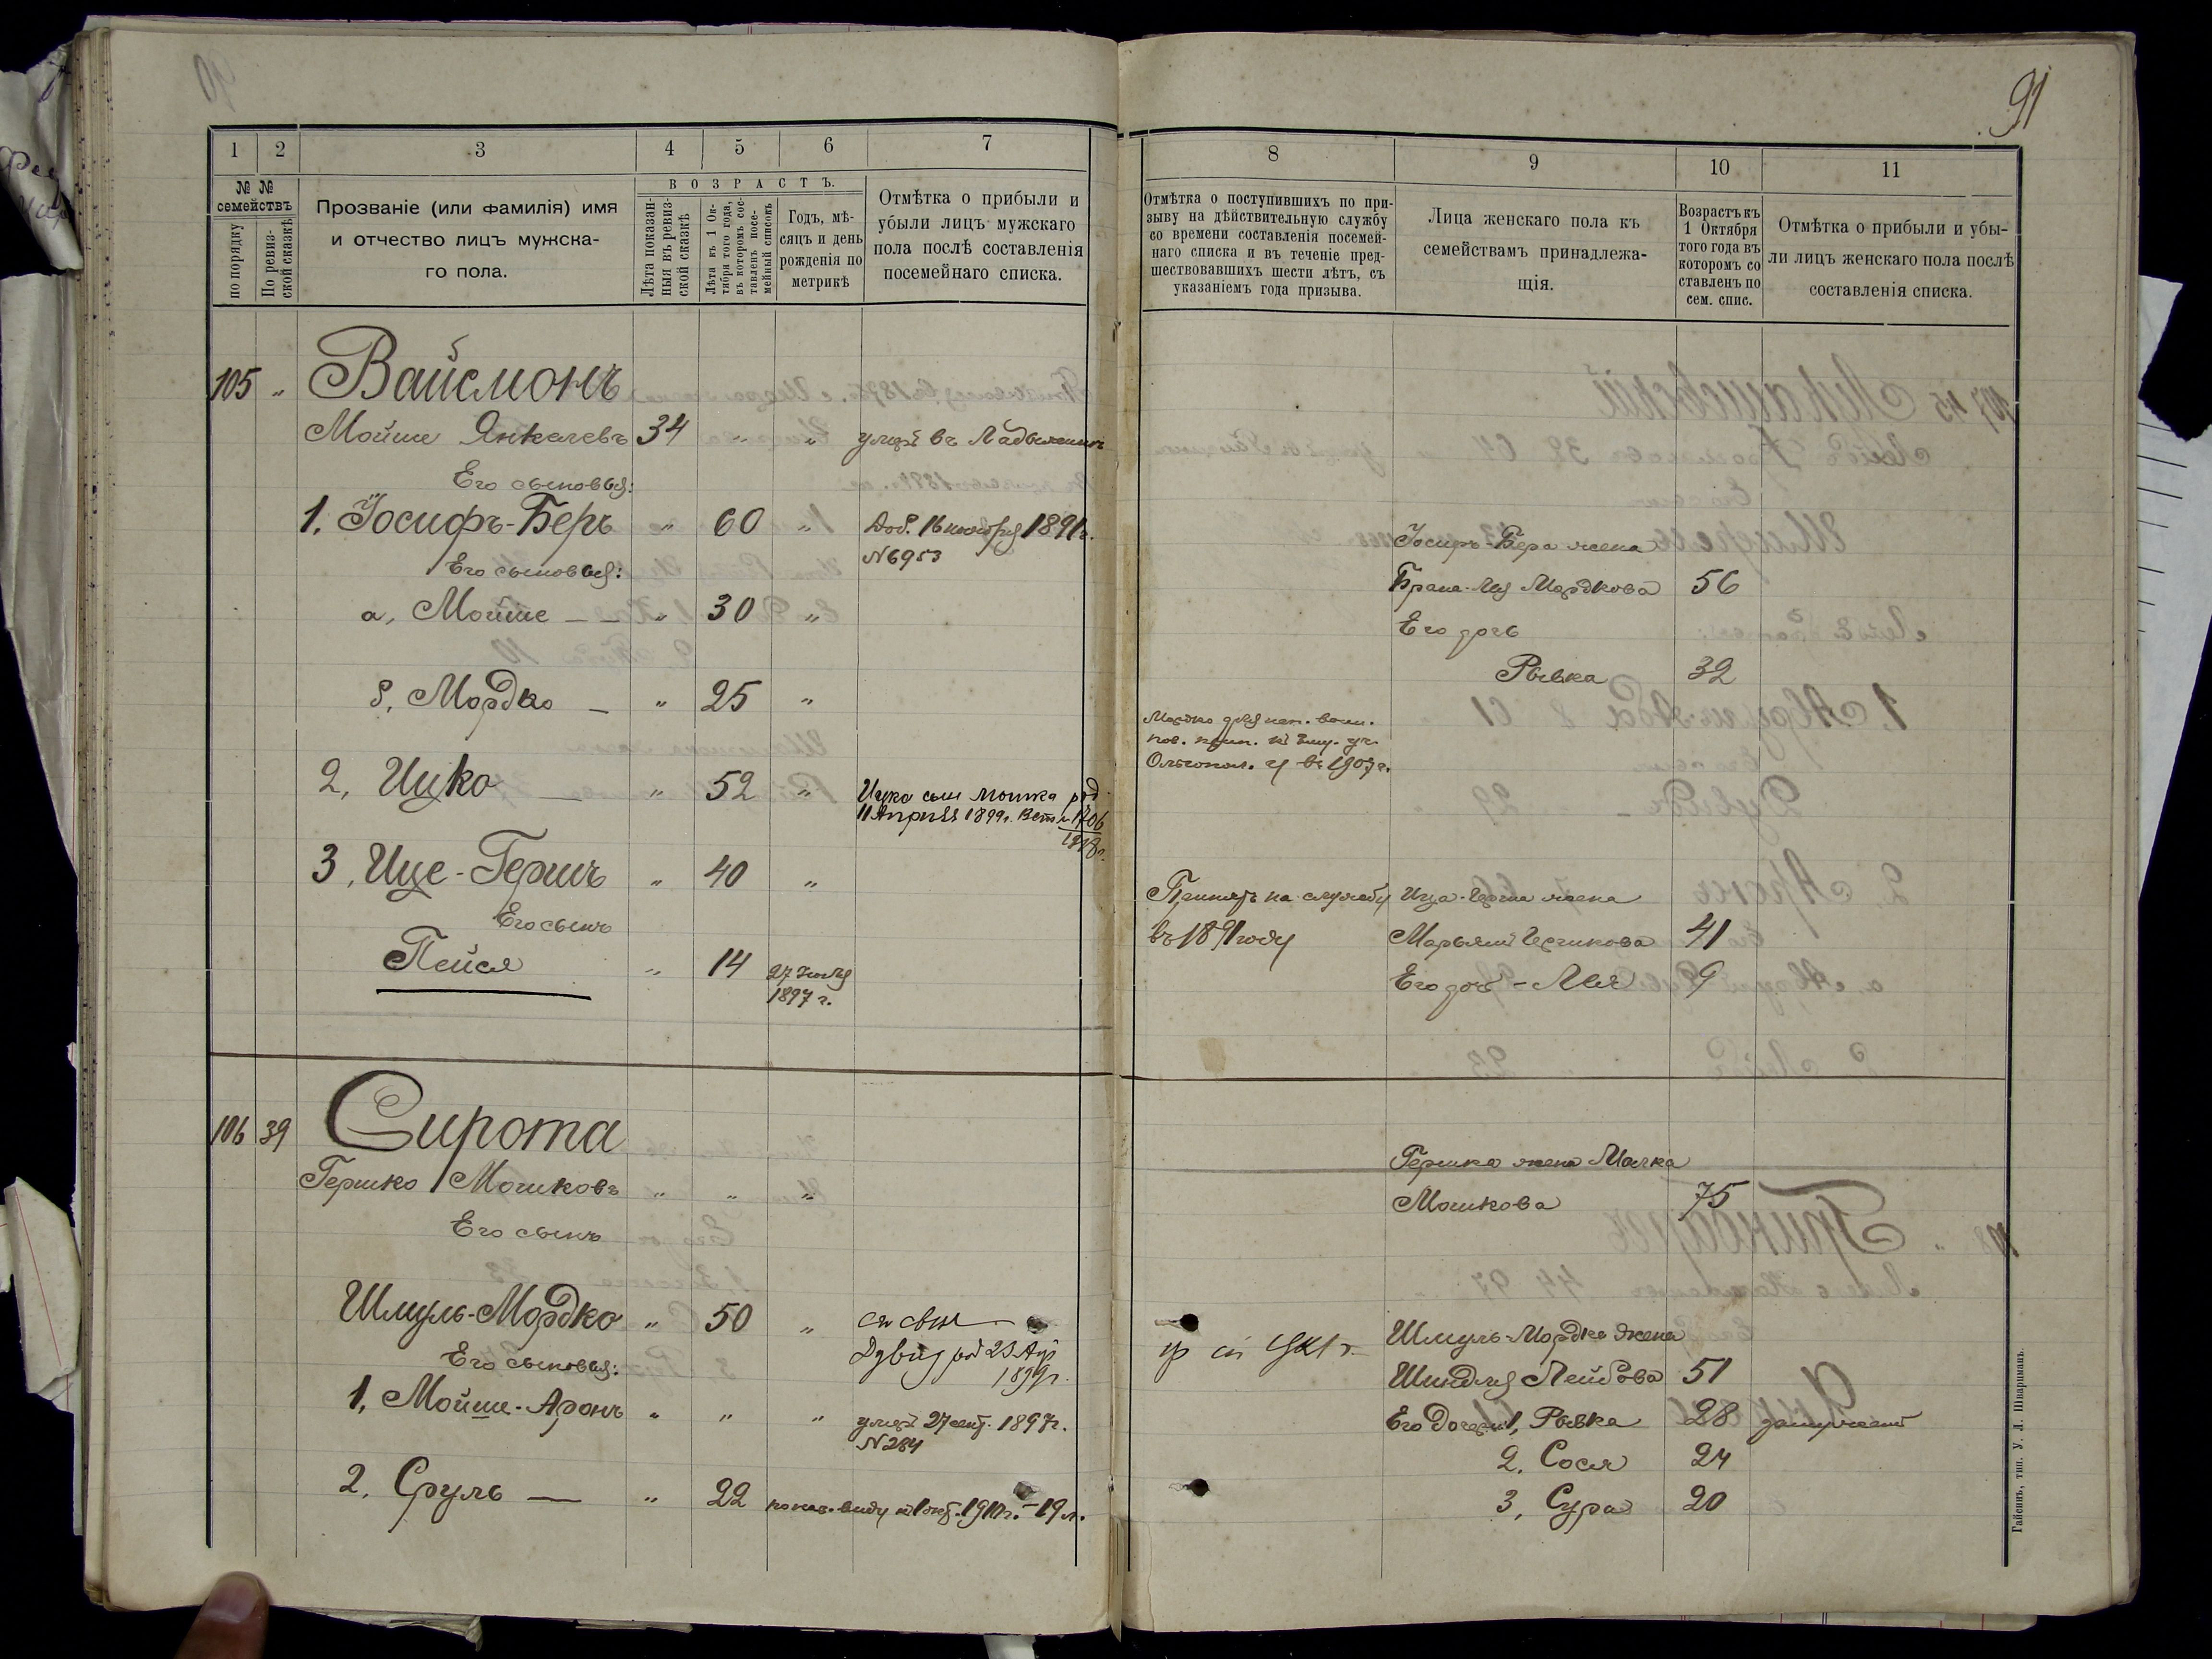 91
1 2 3 4 5 6 7
№ №
семействъ
по порядку
По ревиз-
ской сказкѣ
Прозваніе (или фамилія) имя
и отчество лицъ мужска-
го пола.
ВОЗРАСТЪ.
Лѣта показан-
ныя въ ревиз-
ской сказкѣ
Лѣта къ 1 Ок-
тября того года,
въ которомъ сос-
тавленъ посе-
мейный списокъ
Годъ, мѣ-
сяцъ и день
рожденія по
метрикѣ
Отмѣтка о прибыли и
убыли лицъ мужскаго
пола послѣ составленія
посемейнаго списка.
105 " Вайсмонъ
Мойше Янкелевъ 34 " " въ Ладыжинѣ
Его сыновья:
1. Іосифъ-Беръ " 60 " Доб. 16 ноября 1891г.
N 6953
Его сыновья:
а, Мойше — " 30 "
б, Мордко — " 25 "
2, Ицко — " 52 " Ицко сын Мошка род
11 Апрѣля 1899г. 1706
1918г.
3, Ице-Гершъ " 40 "
Его сынъ
Пейся " 14 27 Іюля
1897 г.
106 39 Сирота
Гершко Мошковъ " " "
Его сынъ
Шмуль-Мордко " 50 "
Его сыновья: род 23
1899г.
1, Мойше-Аронъ " " " 27 сент. 1897г.
N 284
2. Сруль — " 22 по нар. виду к 1 окт. 191 г. - 19 л.
8 9 10 11
Отмѣтка о поступившихъ по при-
зыву на дѣйствительную службу
со времени составленія посемей-
наго списка и въ теченіе пред-
шествовавшихъ шести лѣтъ, съ
указаніемъ года призыва.
Лица женскаго пола къ
семействамъ принадлежа-
щія.
Возрастъ къ
1 Октября
того года въ
которомъ со
ставленъ по
сем. спис.
Отмѣтка о прибыли и убы-
ли лицъ женскаго пола послѣ
составленія списка.
Іосифъ-Бера жена
Мордкова 56
Его дочь
Рывка 32
Мордко для
пов.
Ольгопол. у въ 1907 г.
Принятъ на службу Ица-Герша жена
въ 1891 году Марьям 41
Его дочь - Лея 9
Гершка жена Малка
Мошкова 75
Шмуль-Мордка жена
Шиндля Лейбова 51
Его дочери 1, Рывка 28 замужем
2. Сося 24
3, Сура 20
Гайсинъ, тип. У. Л. Шварцманъ.